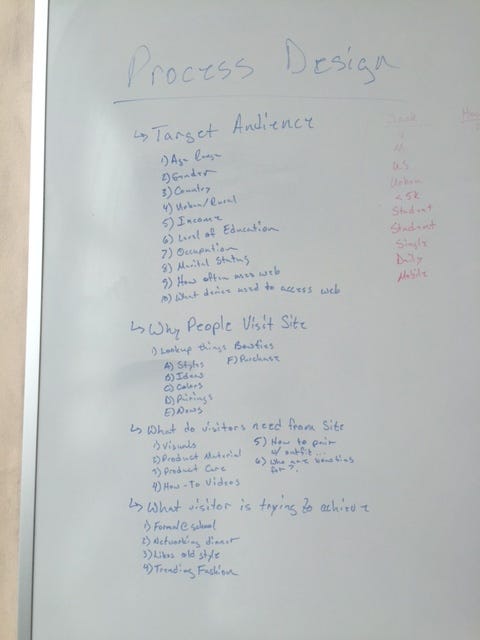 Process Design
↳ Target Audience
1) Age range
2) Gender
3) Country
4) Urban/Rural
5) Income
6) Level of Education
7) Occupation
8) Marital Status
9) How often uses web
10) What device used to access web
↳ Why People Visit Site
1) Lookup things Bowties
A) Styles
B) Ideas
C) Colors
D) Pairings
E) News
F) Purchase
↳ What do visitors need from Site
1) Visuals
2) Product Material
3) Product Care
4) How-To Videos
5) How to pair
w/ outfit...
6) Who are bowties
for?
↳ What visitor is trying to achieve
1) Formal@school
2) Networking dinner
3) Likes old style
4) Trending Fashion
M
US
Urban
<5k
Student
Student
Single
Daily
Mobile